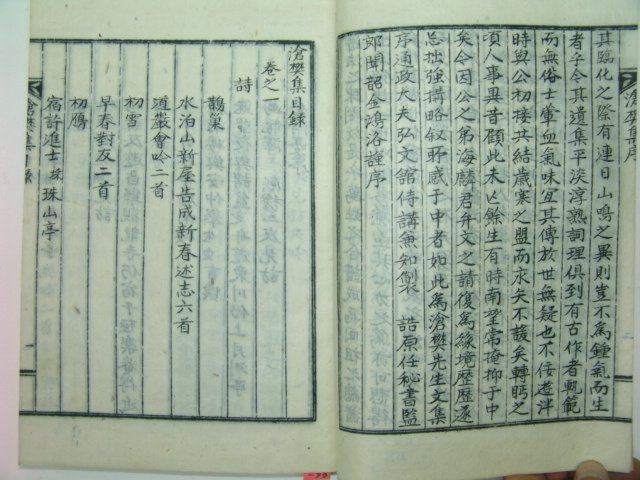 其臨化之際有連日山鳴之異則豈不為鍾氣而生
者乎今其遺集平淡淳熟詞理俱到有古作者軌範
而無俗士葷血氣味宜其傳於世無疑也不佞遊泮
時與公初接共結歲寒之盟而永矢不諼矣轉眄之
頃人事異昔顧此未亾餘生有時南望常掩抑于中
矣今因公之弟海麟君弁文之請復為緣境歷歷遂
忘拙強搆略叙所感于中者如此為滄樊先生文集
序通政大夫弘文館侍講兼知製 誥原任祕書監
郎聞韶金鴻洛謹序
滄樊集序
滄樊集目錄
卷之一
詩
鵲巢
水泊山新屋告成新春述志六首
道巖會吟二首
初雪
早春對友二首
初鴈
宿許進士 珠山亭
滄樊集目錄
一